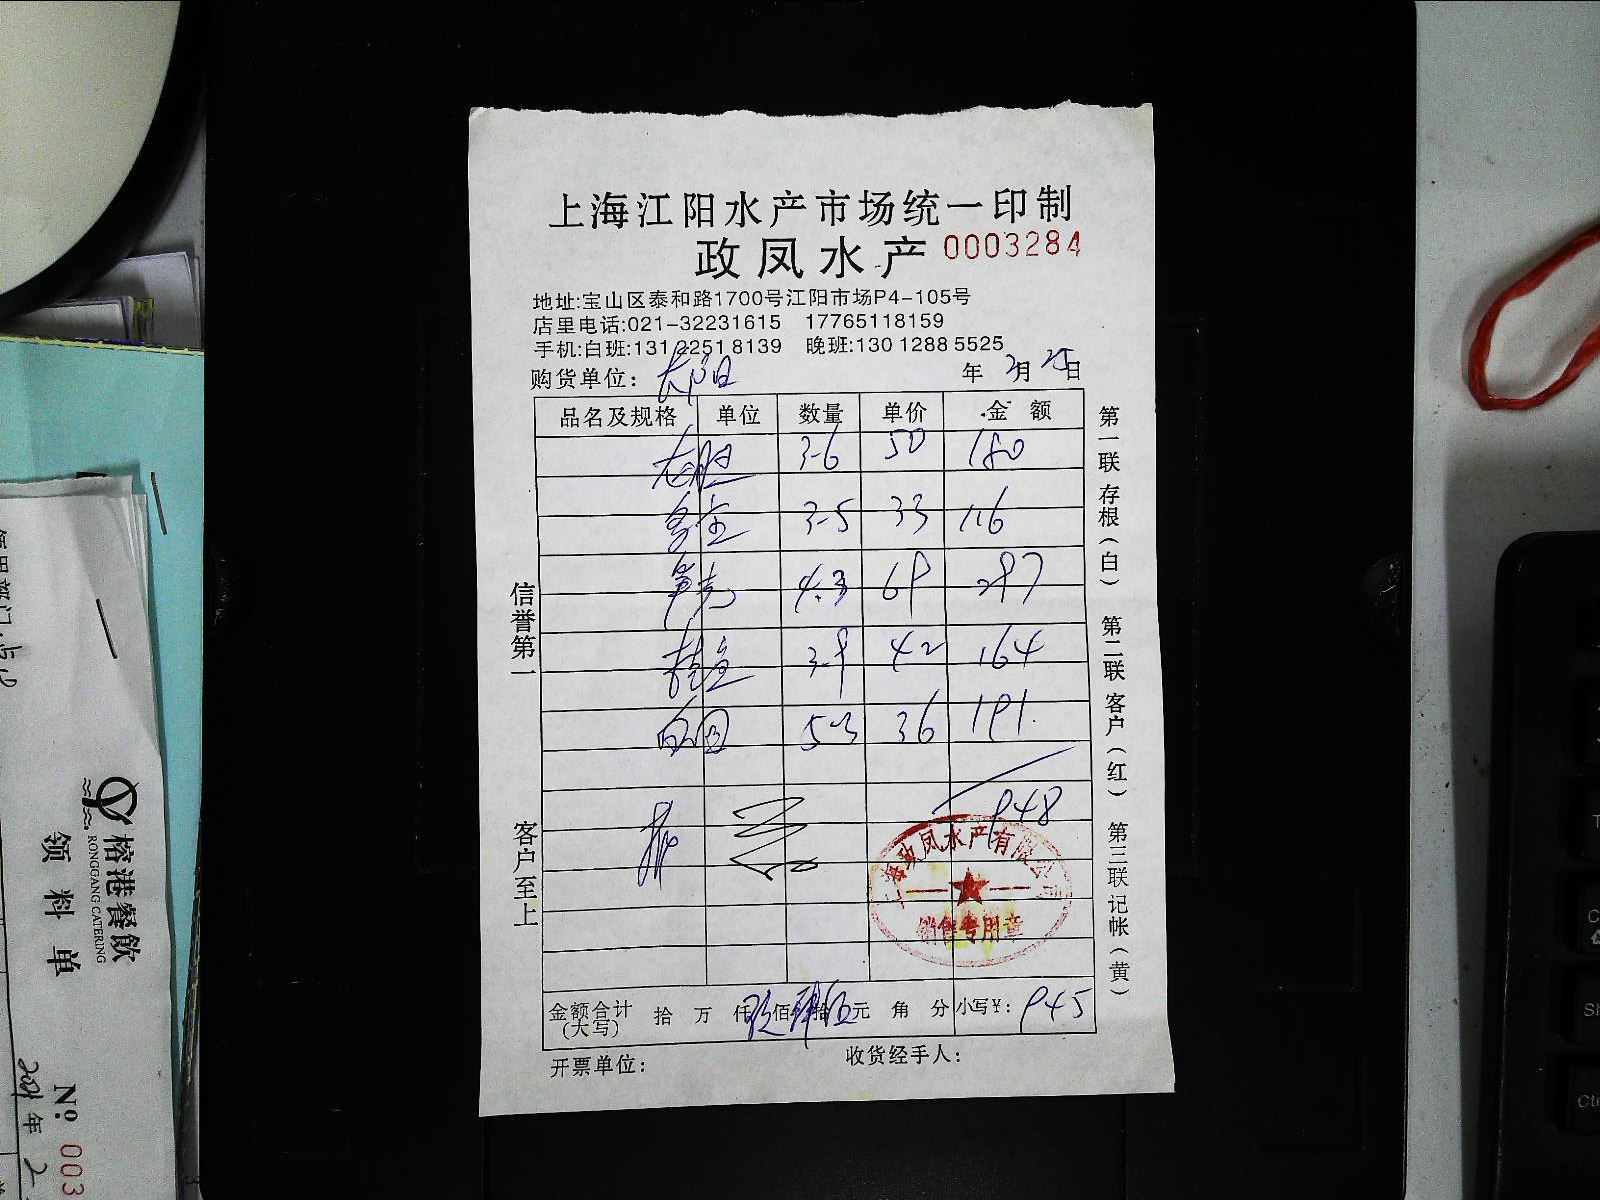 上海江阳水产市场统一印制
政凤水产 0003284
地址:宝山区泰和路1700号江阳市场P4-105号
店里电话:021-32231615 17765118159
手机:白班:131 2251 8139 晚班:130 1288 5525
购货单位: 长阳 年 2月 25日
品名及规格 单位 数量 单价 金额
3-6 50 180
3-5 33 116
4.3 68 287
桂鱼 3-9 42 164
5-3 36 191
948
上海政凤水产有限公司
销售专用章
金额合计(大写) 拾 万 仟 玖佰肆拾伍元 角 分 小写¥: 945
开票单位: 收货经手人:
信誉第一
客户至上
第一联 存根(白) 第二联 客户(红) 第三联 记帐(黄)
榕港餐飲
RONGGANG CATERING
领料单
№ 003
2021年 2